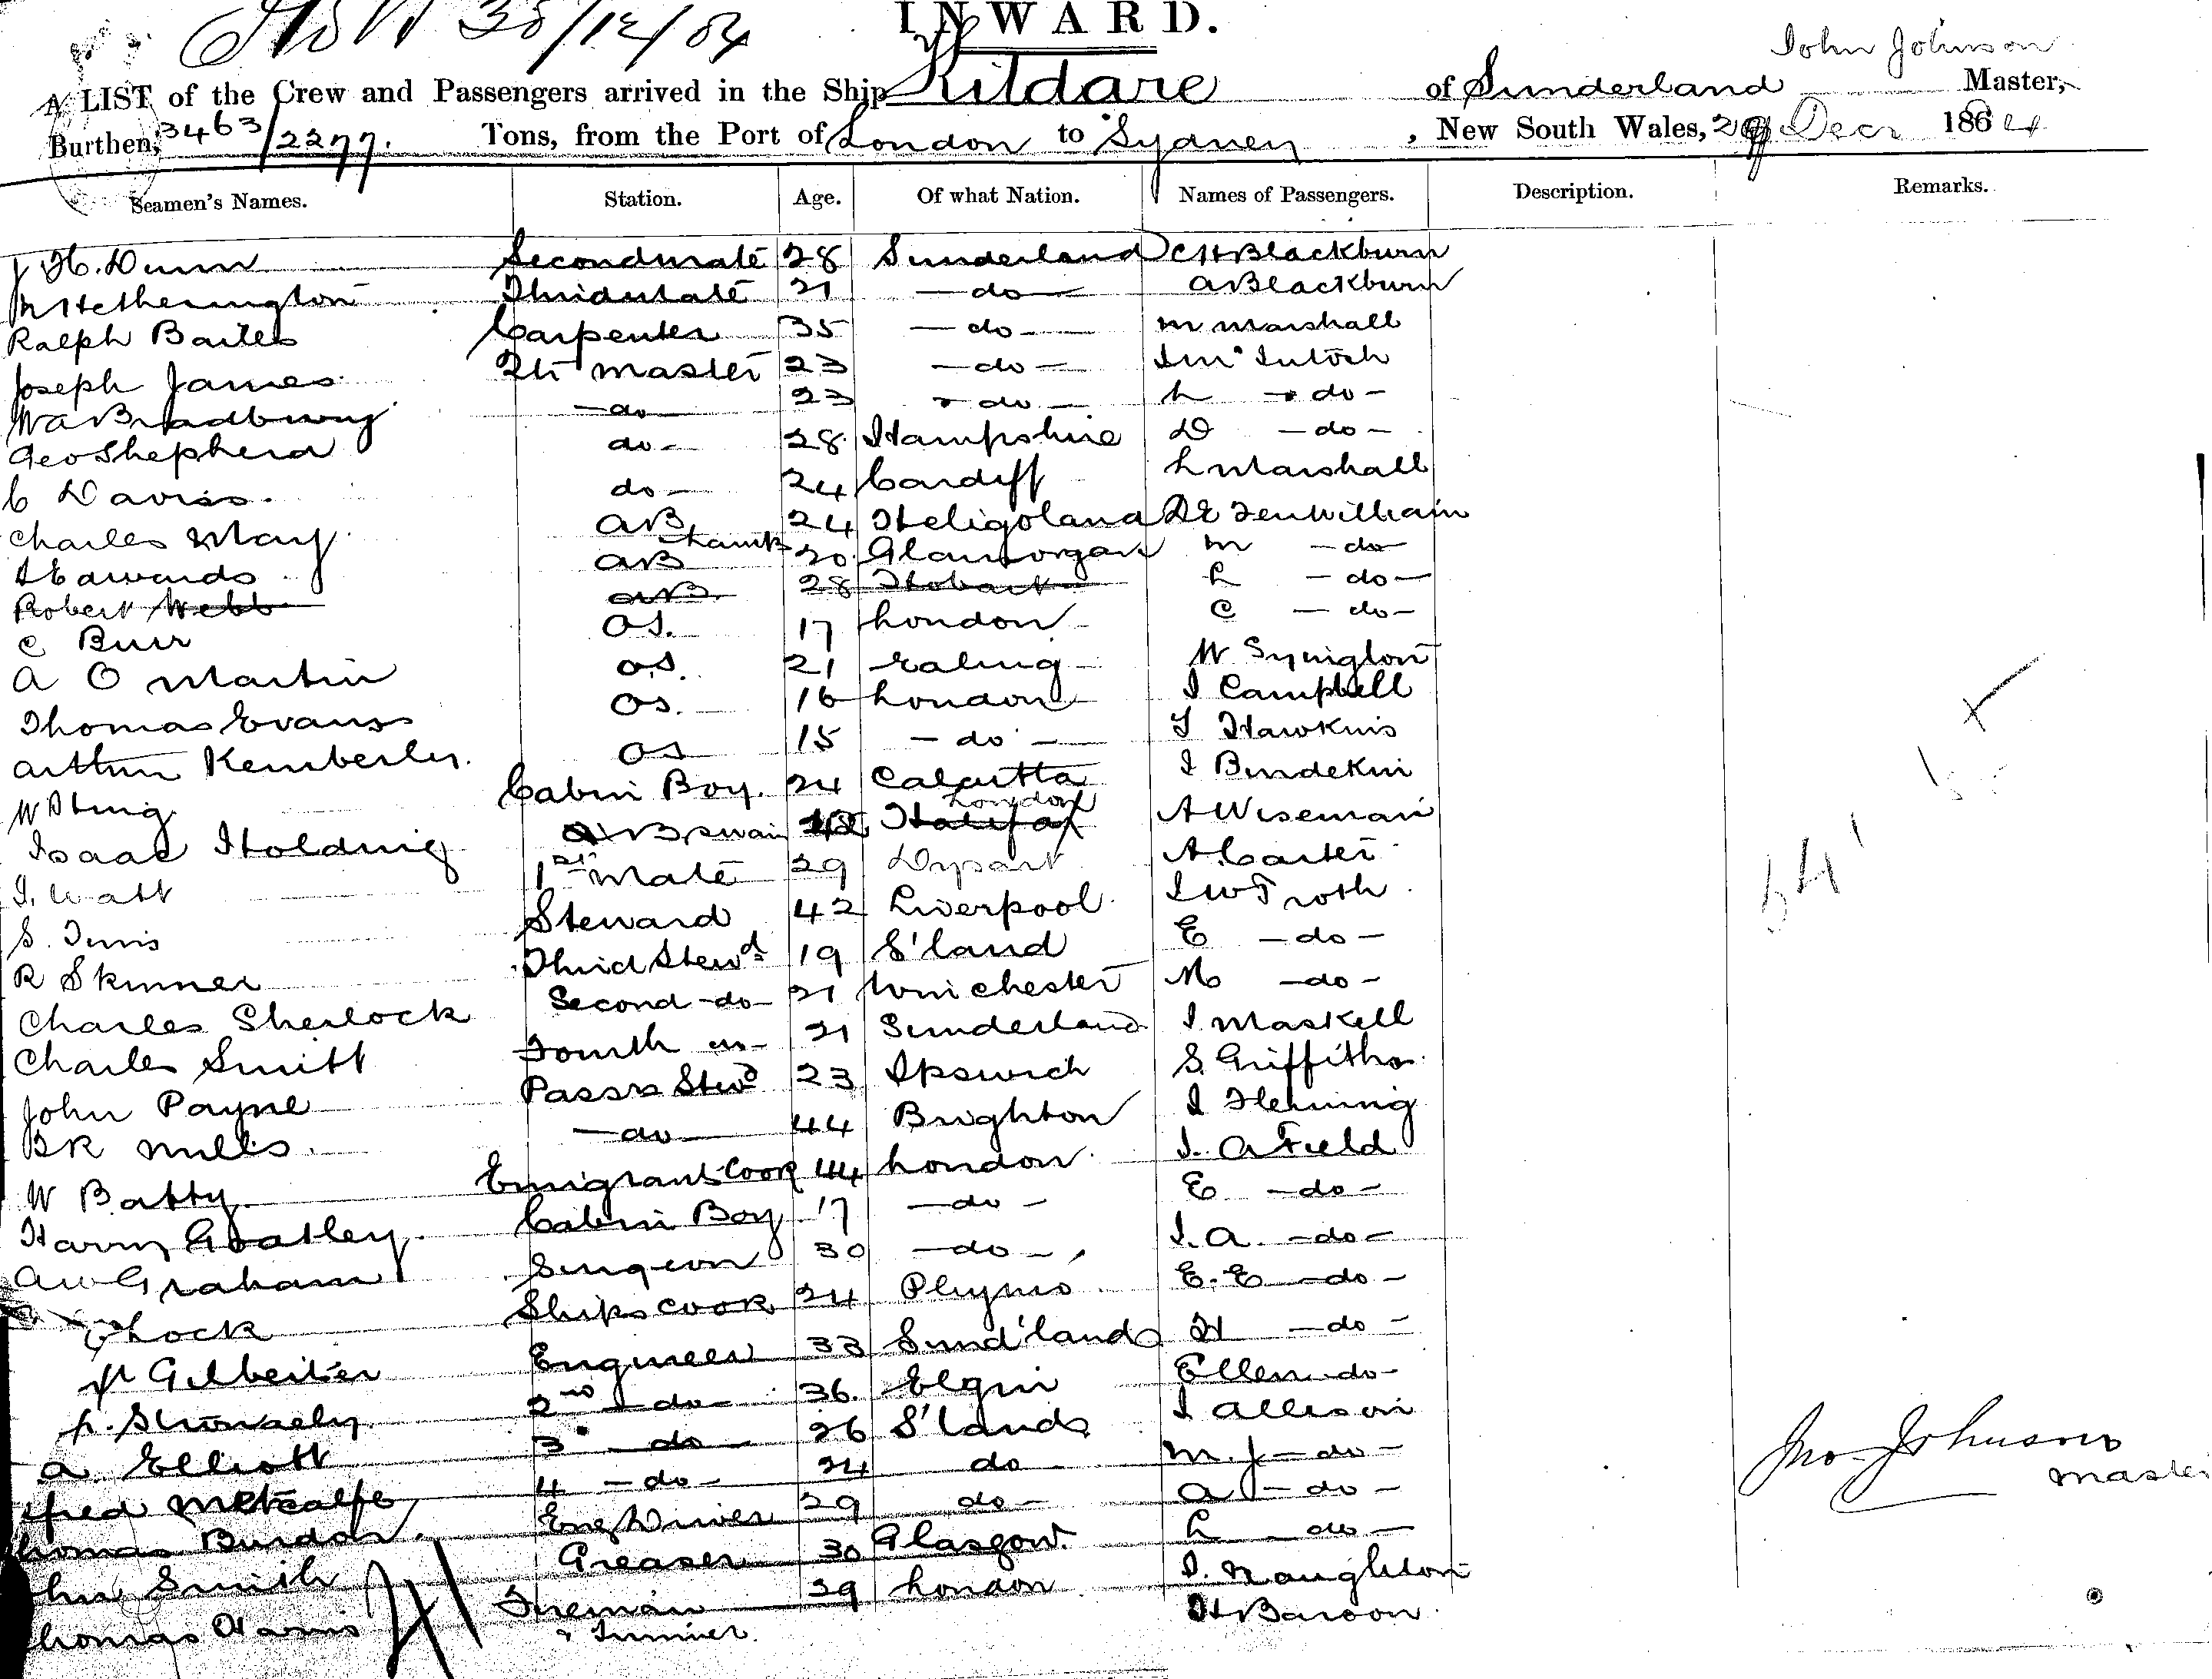 30/12/84
INWARD.
John Johnson
A LIST of the Crew and Passengers arrived in the Ship Kildare of Sunderland Master,
Burthen, 3463/2277. Tons, from the Port of London to Sydney, New South Wales, 29 Decr 1884
Seamen's Names. Station. Age. Of what Nation. Names of Passengers. Description. Remarks.
J H. Dunn Second mate 28 Sunderland C H Blackburn
M Hetherington Third mate 21 -do- A Blackburn
Ralph Bailes Carpenter 35 -do- M Marshall
Joseph James Qtr Master 23 -do- J McIntosh
W A Bradbury -do- 23 -do- L -do-
Geo Shepherd do- 28 Hampshire D -do-
C Davies. do- 24 Cardiff L Marshall
Charles May AB 24 Heligoland
Edwards AB Lamps 20 Glamorgan M -do-
Robert Webb AB 28 Hobart L -do-
C Burr OS. 17 London C -do-
A O Martin OS. 21 Ealing W Symington
Thomas Evans OS. 16 London J Campbell
Arthur Kemberley. OS 15 -do- T Hawkins
W Cabin Boy. 24 Calcutta J Bindekin
Isaac Holding Bswain Halifax London A Wiseman
J. Watt 1st Mate 29 Dysart A Carter
S. Steward 42 Liverpool J W Troth
R Skinner Third Stewd 19 S'land E -do-
Charles Sherlock Second -do- 21 Winchester M -do-
Charles Smith Fourth 21 Sunderland J Maskell
John Payne Passrs Stewd 23 Ipswich S. Griffiths
B R Mills. -do- 44 Brighton J Fleming
W Batty Emigrant Cook 44 London J. A Field
Harry Goatley Cabin Boy 17 -do- E -do-
A W Graham Surgeon 30 -do- J. A. -do-
Lock Ships Cook 24 Plymo E. E -do-
Engineer 33 Sund'land H -do-
2nd -do- 36. Elgin Ellen -do-
A Elliott 3 -do- 26 S'land J Allison
fred Metcalfe 4 -do- 24 do M. J -do-
homas Burdon. Eng Driver 29 do- A -do-
hn Smith Greaser 30 Glasgow. L -do-
homas Harris Fireman 29 London J. Naughton
& Trimmer. H Baroon
Jno Johnson
Master